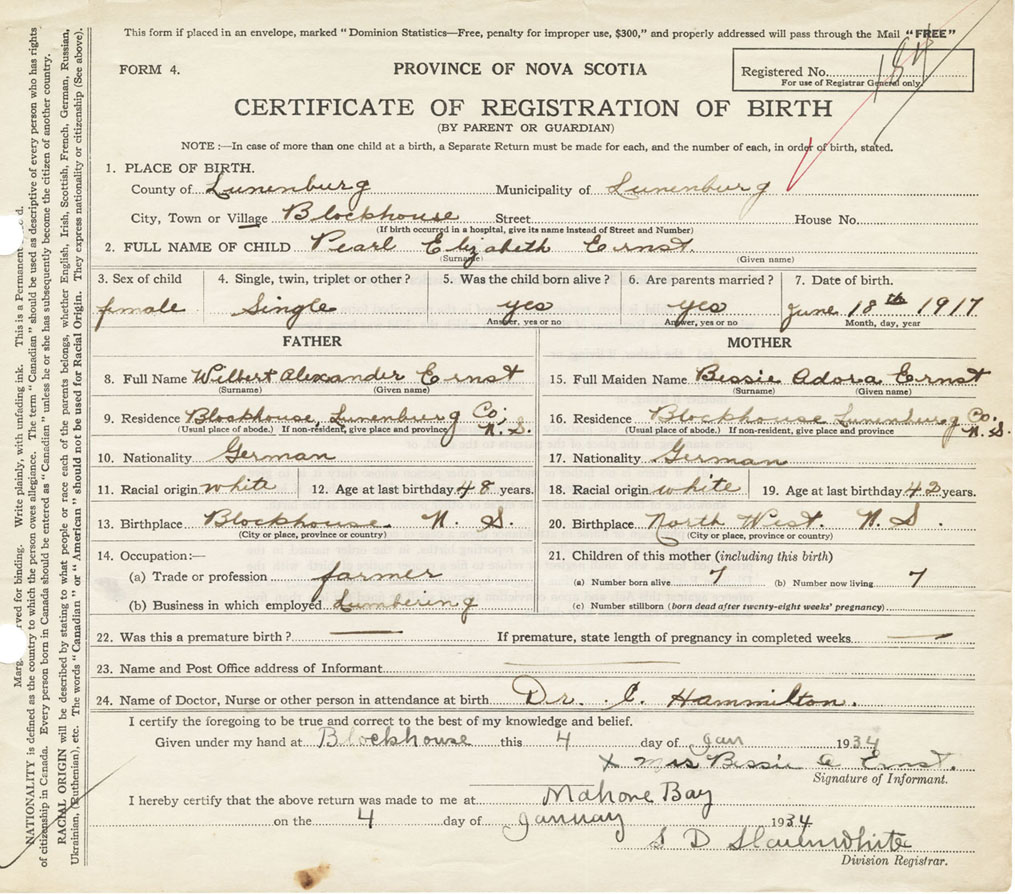 This form if placed in an envelope, marked "Dominion Statistics—Free, penalty for improper use, $300," and properly addressed will pass through the Mail "FREE"
FORM 4.
PROVINCE OF NOVA SCOTIA
Registered No.
For use of Registrar General only.
CERTIFICATE OF REGISTRATION OF BIRTH
(BY PARENT OR GUARDIAN)
NOTE :—In case of more than one child at a birth, a Separate Return must be made for each, and the number of each, in order of birth, stated.
1. PLACE OF BIRTH.
County of Lunenburg Municipality of Lunenburg
City, Town or Village Blockhouse Street House No.
(If birth occurred in a hospital, give its name instead of Street and Number)
2. FULL NAME OF CHILD Pearl Elizabeth Ernst
(Surname) (Given name)
3. Sex of child 4. Single, twin, triplet or other? 5. Was the child born alive? 6. Are parents married? 7. Date of birth.
female Single yes yes June 18th 1917
Answer, yes or no Answer, yes or no Month, day, year
FATHER MOTHER
8. Full Name Wilbert Alexander Ernst 15. Full Maiden Name Bessie Adora Ernst
(Surname) (Given name) (Surname) (Given name)
9. Residence Blockhouse, Lunenburg Co; N. S. 16. Residence Blockhouse Lunenburg Co. N. S.
(Usual place of abode.) If non-resident, give place and province (Usual place of abode.) If non-resident, give place and province
10. Nationality German 17. Nationality German
11. Racial origin white 12. Age at last birthday 48 years. 18. Racial origin white 19. Age at last birthday 42 years.
13. Birthplace Blockhouse N. S. 20. Birthplace North West. N. S.
(City or place, province or country) (City or place, province or country)
14. Occupation:— 21. Children of this mother (including this birth)
(a) Trade or profession farmer (a) Number born alive 7 (b) Number now living 7
(b) Business in which employed Lumbering (c) Number stillborn (born dead after twenty-eight weeks' pregnancy)
22. Was this a premature birth? — If premature, state length of pregnancy in completed weeks —
23. Name and Post Office address of Informant
24. Name of Doctor, Nurse or other person in attendance at birth Dr. C. Hammilton.
I certify the foregoing to be true and correct to the best of my knowledge and belief.
Given under my hand at Blockhouse this 4 day of Jan 1934
x Mrs Bessie A Ernst.
Signature of Informant.
I hereby certify that the above return was made to me at Mahone Bay
on the 4 day of January 1934
S D Slauenwhite
Division Registrar.
served for binding. Write plainly, with unfading ink. This is a Permanent
NATIONALITY is defined as the country to which the person owes allegiance. The term "Canadian" should be used as descriptive of every person who has rights
of citizenship in Canada. Every person born in Canada should be entered as "Canadian" unless he or she has subsequently become the citizen of another country.
RACIAL ORIGIN will be described by stating to what people or race each of the parents belongs, whether English, Irish, Scottish, French, German, Russian,
Ukrainian, (Ruthenian), etc. The words "Canadian" or "American" should not be used for Racial Origin. They express nationality or citizenship (See above).